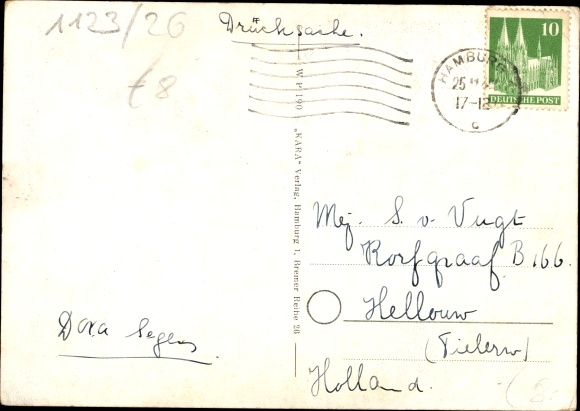 1123/26
Drücksache.
€8
10
DEUTSCHE POST
HAMBURG
25
17-18
c
W P 190
„KARA" Verlag, Hamburg 1, Bremer Reihe 26
Mej. S. v. Vugt
Korfgraaf B 166
Hellouw
(Tielerw)
Holland.
Dora Segers